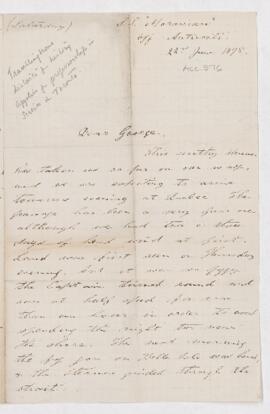 (Saturday)
S.S. "Moravian"
off Anticosti
22nd June 1878.
ACC 576
Travelling from
Applies for professorship in
Toronto
Dear George,
This
has taken us so far on our way,
and we are expecting to arrive
tomorrow evening at Quebec. The
passage has been a very fine one
although we had two or three
days of head wind at first.
Land was first seen on Thursday
evening, but it was so foggy
the Captain turned round and
ran at half speed for more
than an hour in order to avoid
spending the night too near
the shore. The next morning
the fog gun on Belle Isle was heard,
& the steamer guided through the
strait.